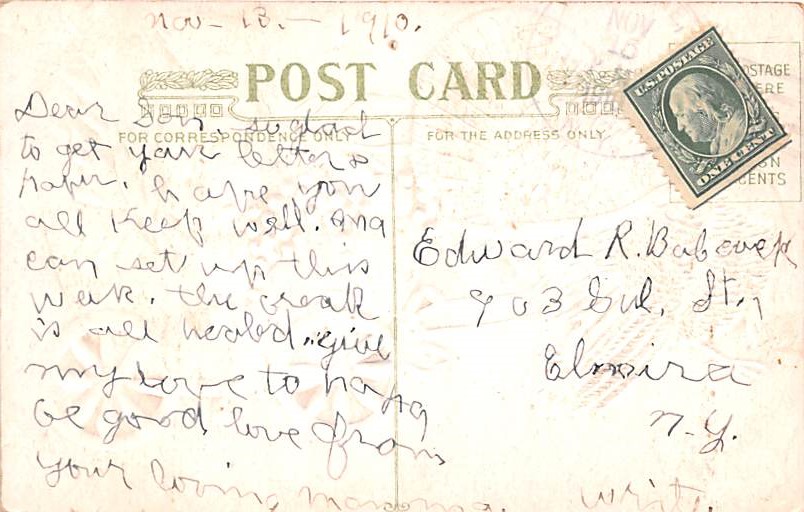 Nov - 13. - 1910.
POST CARD
FOR CORRESPONDENCE ONLY
FOR THE ADDRESS ONLY
NOV
U.S. POSTAGE
ONE CENT
Dear Son, so glad
to get your letter &
paper. hope you
all keep well. Ma
can set up this
week. the break
is all healed. give
my love to papa
be good, love from
your loving mamma.
write.
Edward R. Babcock
903 St.,
Elmira
N-Y.